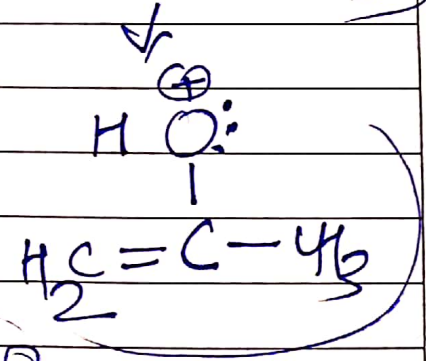 ⊕
H O:
|
H₂C=C—CH₃